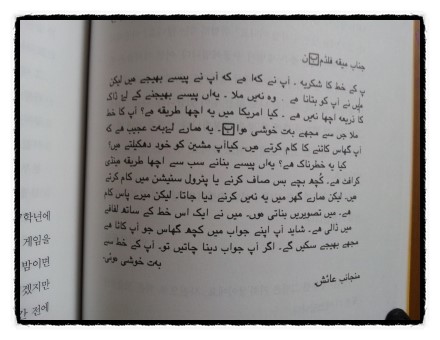 جناب میفہ فلڈم ن
پ کے خط کا شکریہ ۔ آپ نے کہا ہے کہ آپ نے پیسے بھیجے ہیں لیکن
میں نے آپ کو بتانا ہے ۔ وہ نہیں ملا ۔ یہاں پیسے بھیجنے کے لیۓ ڈاک
کا ذریعہ اچھا نہیں ہے ۔ کیا امریکا میں یہ اچھا طریقہ ہے؟ آپ کا خط
ملا جس سے مجھے بہت خوشی ہوا ۔ یہ ہمارے لیۓ بہت عجیب ہے کہ
آپ گھاس کاٹنے کا کام کرتے ہیں۔ کیا آپ مشین کو خود دھکیلتے ہیں؟
کیا یہ خطرناک ہے؟ یہاں پیسے بنانے سب سے اچھا طریقہ ہینڈی
کرافٹ ہے۔ کُچھ بچے بس صاف کرنے یا پٹرول سٹیشن میں کام کرتے
ہیں۔ لیکن ہمارے گھر میں یہ نہیں کرنے دیا جاتا۔ لیکن میرے پاس کام
ہے۔ میں تصویریں بناتی ہوں۔ میں نے ایک اس خط کے ساتھ لفافے
میں ڈالی ہے۔ شاید آپ اپنے جواب میں کچھ گھاس جو آپ کاٹا ہے
مجھے بھیجے سکیں گے۔ اگر آپ جواب دینا چاہیں تو۔ آپ کے خط سے
بہت خوشی ہوئی۔
منجانب عائش
학년에
게임을
밤이면
겠지만
가 전에